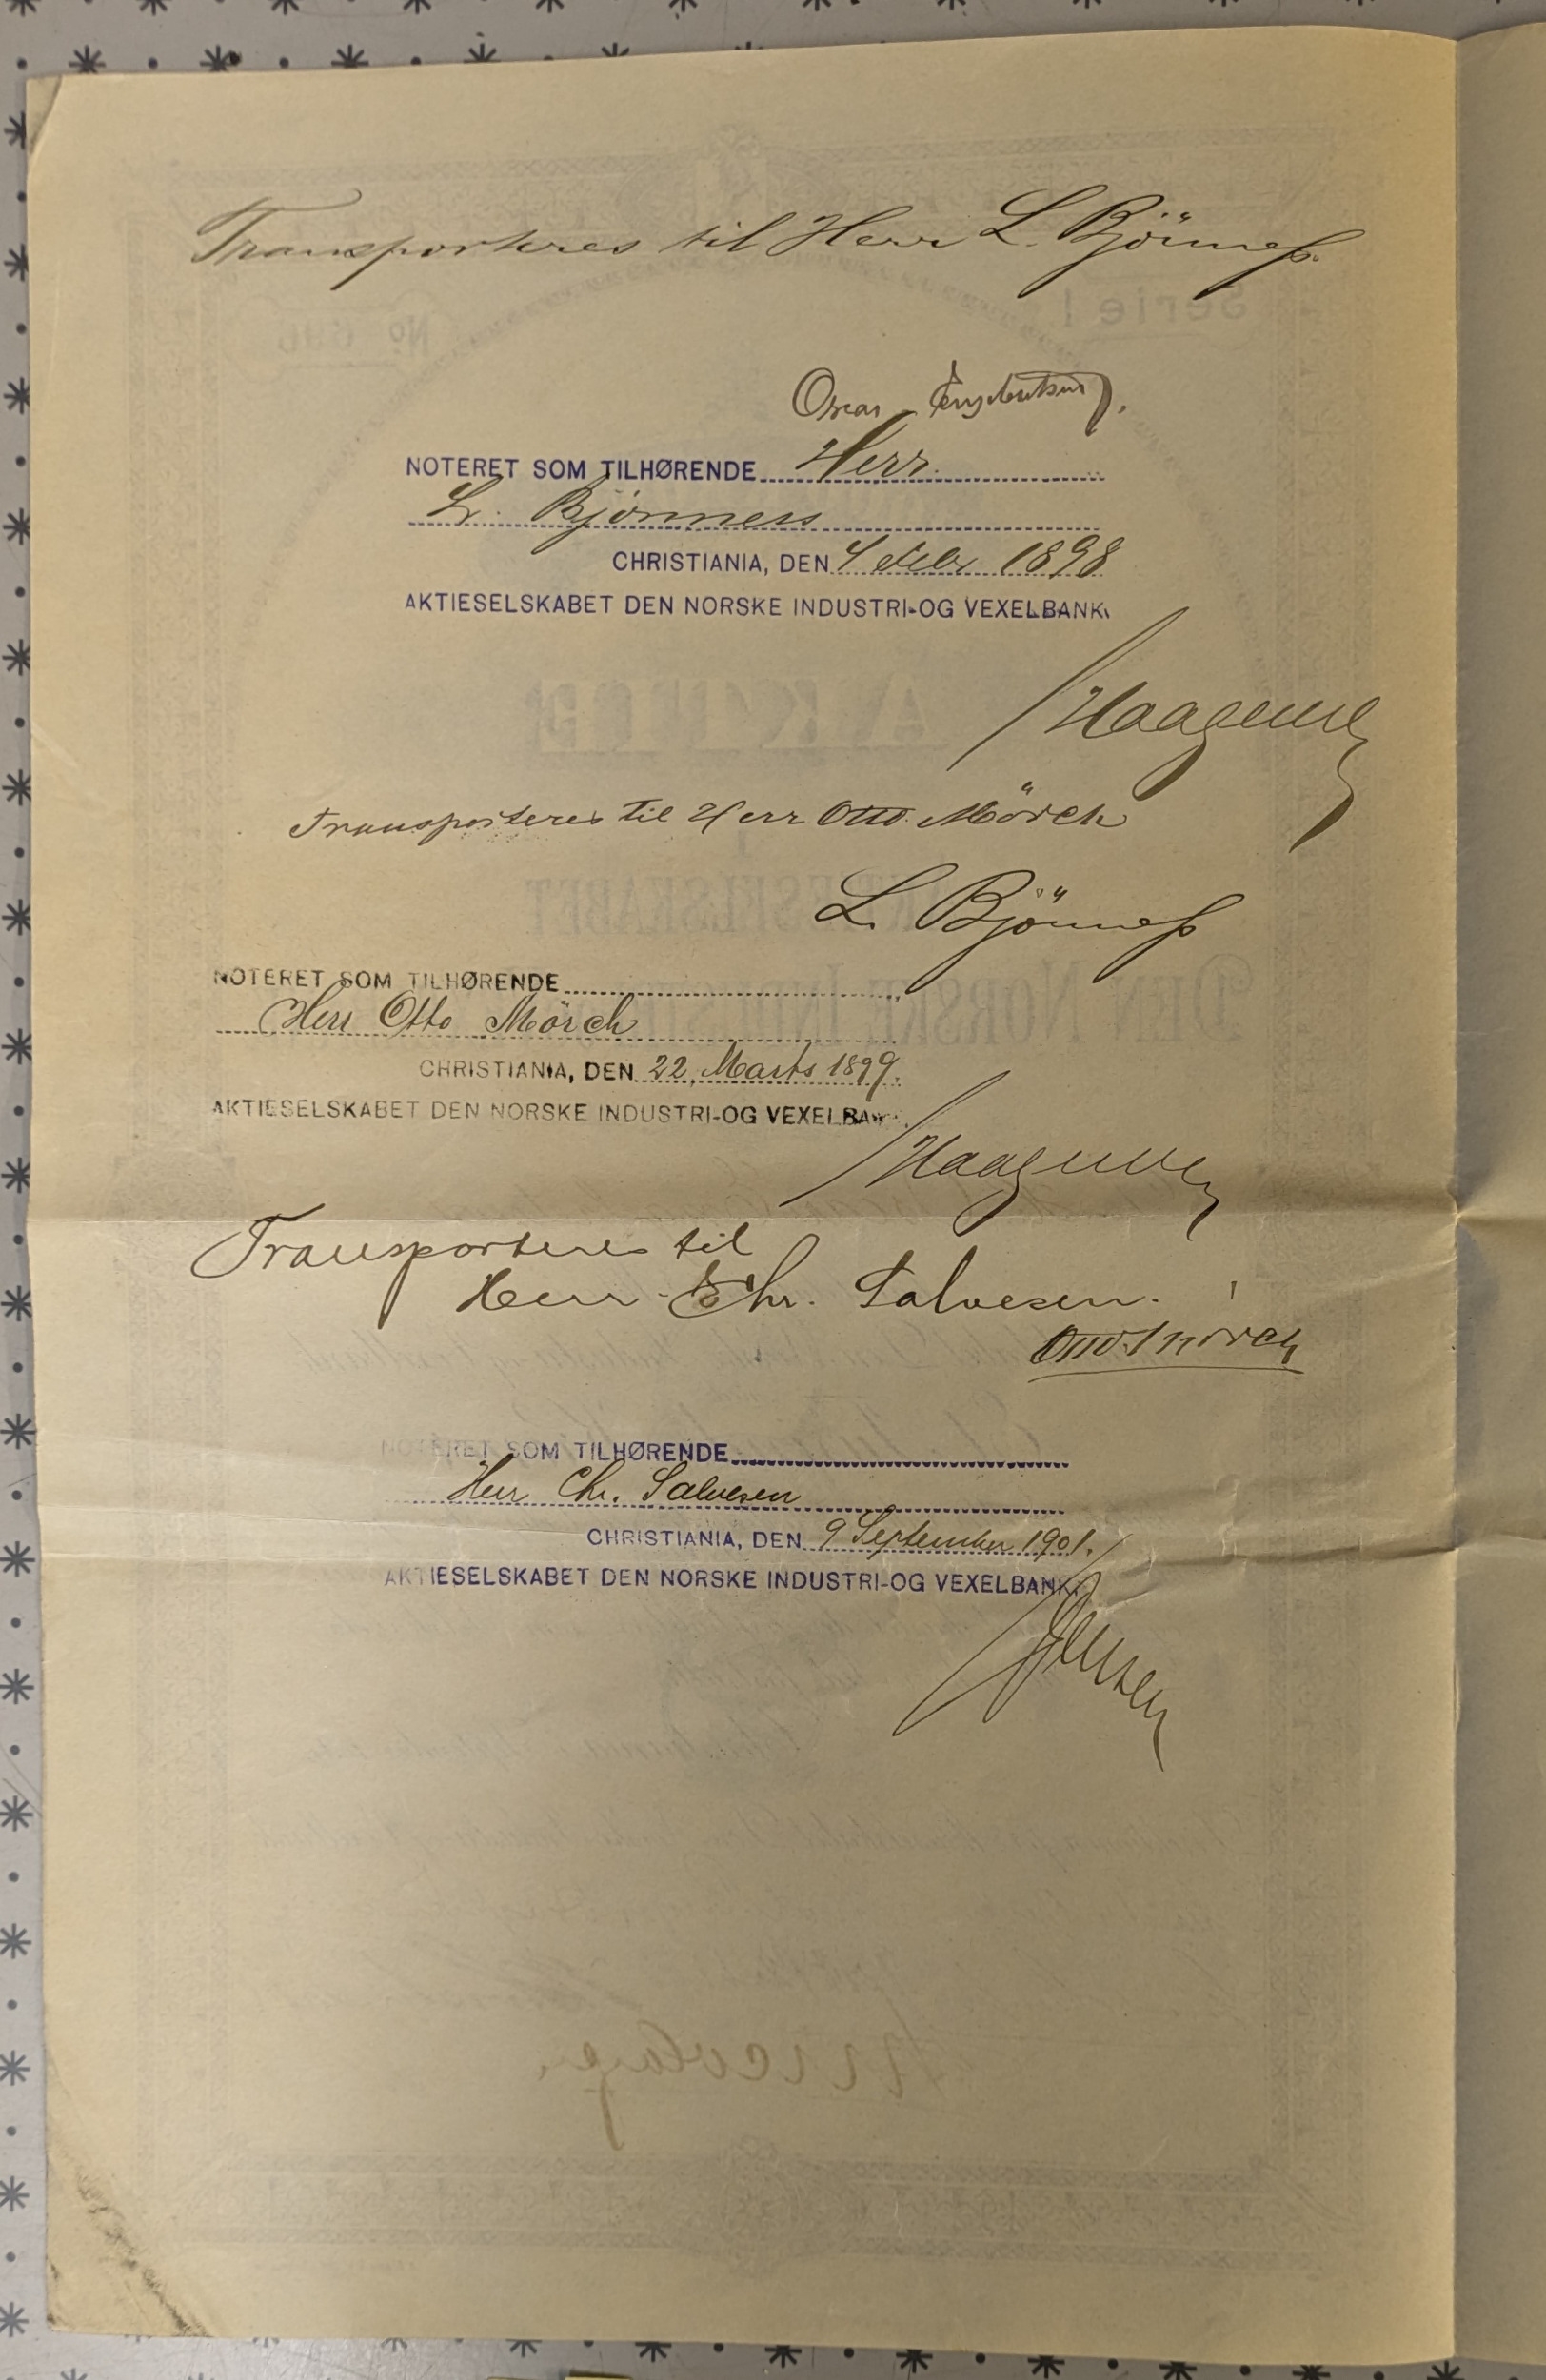 Transporteres til Herr L. Björness.
Serie I
No
Oscar
NOTERET SOM TILHØRENDE Herr
L. Bjønness
CHRISTIANIA, DEN 4 Febr 1898
AKTIESELSKABET DEN NORSKE INDUSTRI-OG VEXELBANK.
AKTIE
Haagensen
Transporteres til Herr Otto Mörch
AKTIESELSKABET
L. Björness
NOTERET SOM TILHØRENDE
DEN NORSKE
Herr Otto Mörch
CHRISTIANIA, DEN 22. Marts 1899.
AKTIESELSKABET DEN NORSKE INDUSTRI-OG VEXELBANK.
Haagensen
Transporteres til
Herr Chr. Salvesen.
Otto Mörch
NOTERET SOM TILHØRENDE
Herr Chr. Salvesen
CHRISTIANIA, DEN 9 September 1901.
AKTIESELSKABET DEN NORSKE INDUSTRI-OG VEXELBANK.